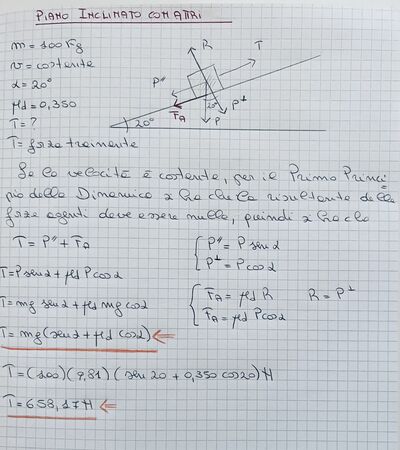 PIANO INCLINATO CON ATTRI
m = 100 Kg
v = costante
α = 20°
μd = 0,350
T = ?
T = forza traente
R
T
P"
FA
20°
P
P⊥
20°
Se la velocità è costante, per il Primo Princi
pio della Dinamica si ha che la risultante delle
forze agenti deve essere nulla, quindi si ha che
T = P" + FA
P" = P sen α
P⊥ = P cos α
T = P sen α + μd P cos α
T = mg sen α + μd mg cos α
FA = μd R R = P⊥
FA = μd P cos α
T = mg (sen α + μd cos α)
T = (100) (9,81) (sen 20 + 0,350 cos 20) N
T = 658,17 N